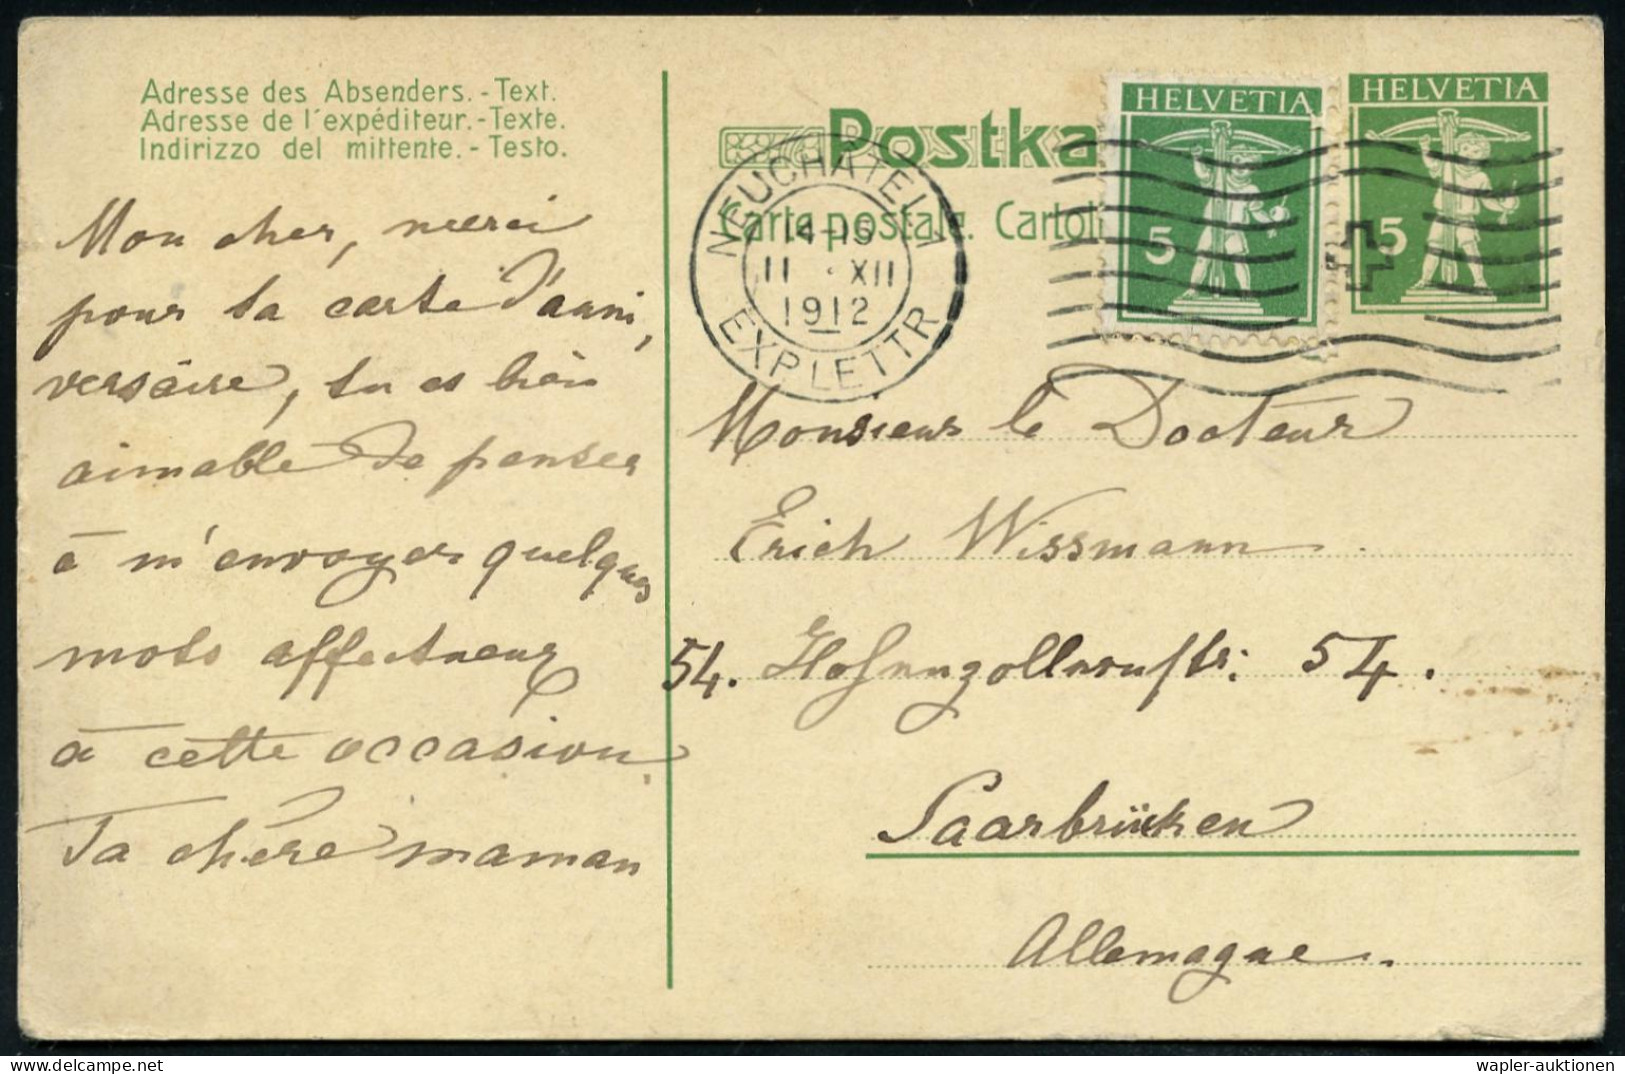 Adresse des Absenders. - Text.
Adresse de l'expéditeur. - Texte.
Indirizzo del mittente. - Testo.
Mon cher, merci
pour ta carte d'anni,
versaire, tu es bien
aimable de penser
à m'envoyer quelques
mots affectueux
à cette occasion
Ta chère maman
Postka
Carte postale. Cartol
NEUCHÂTEL 1
14-15
11 · XII
1912
EXP. LETTR.
HELVETIA
5
HELVETIA
5
Monsieur le Docteur
Erich Wissmann
54. Hohenzollernstr: 54.
Saarbrücken
Allemagne.
wapler-auktionen